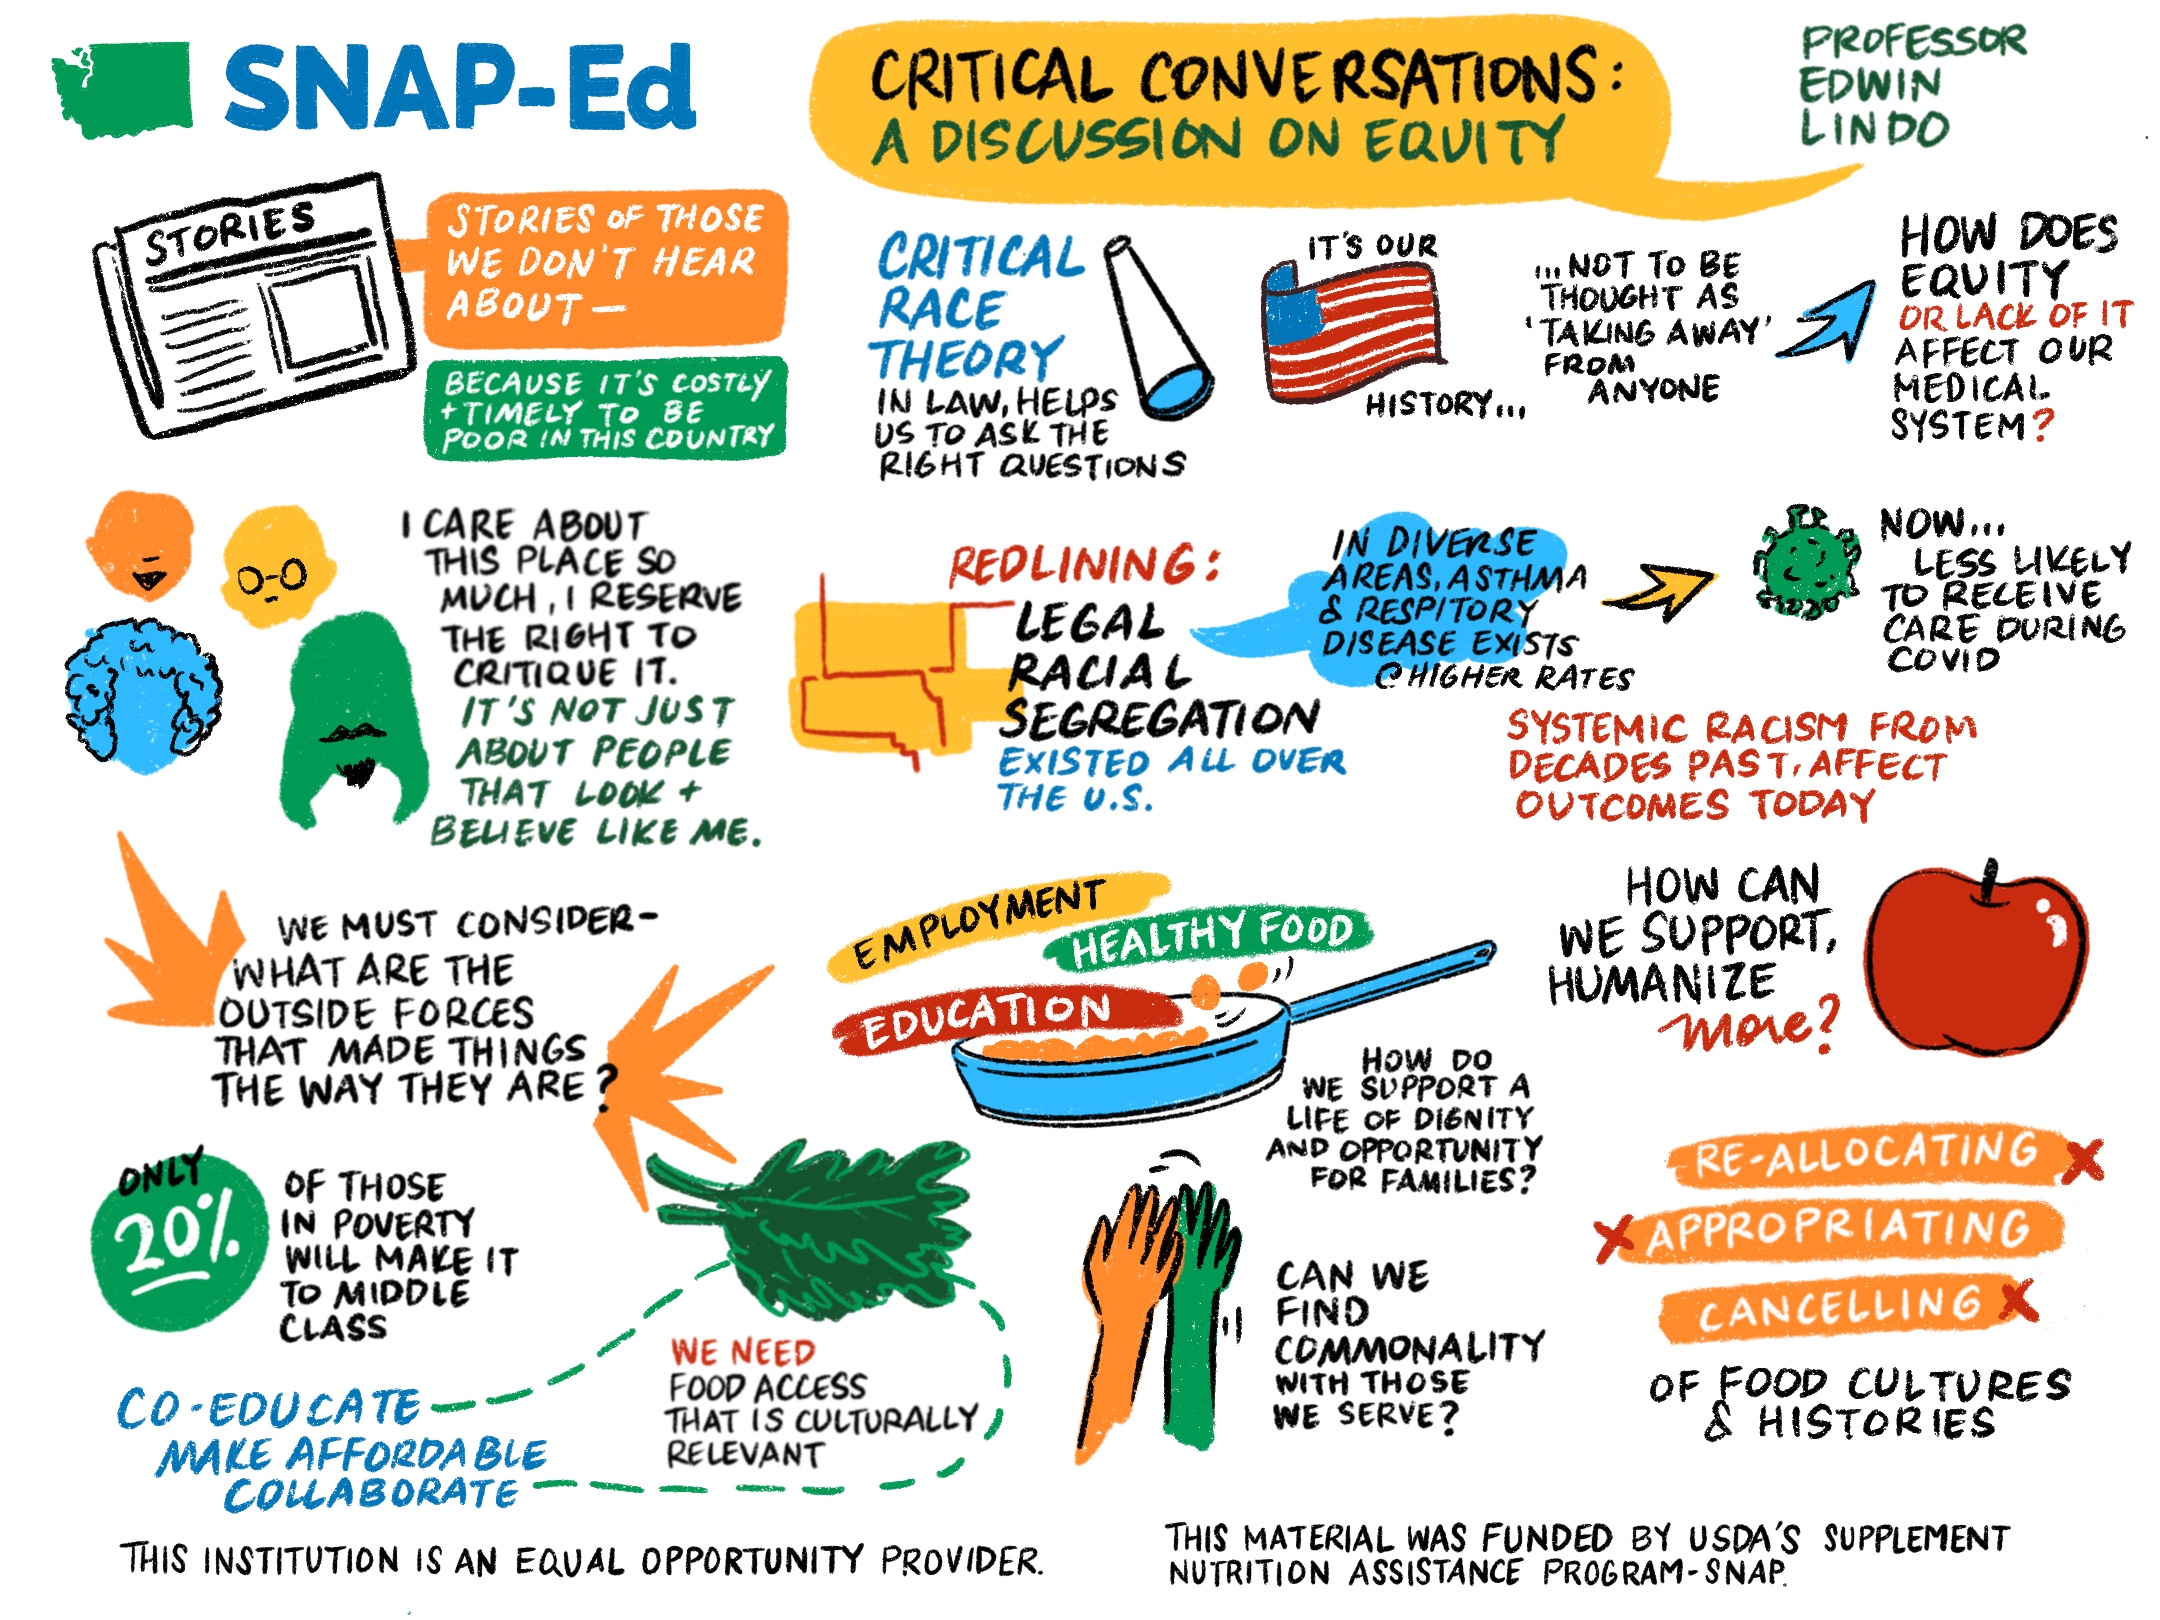 SNAP-Ed
CRITICAL CONVERSATIONS:
A DISCUSSION ON EQUITY
PROFESSOR
EDWIN
LINDO
STORIES
STORIES OF THOSE
WE DON'T HEAR
ABOUT—
BECAUSE IT'S COSTLY
+TIMELY TO BE
POOR IN THIS COUNTRY
CRITICAL
RACE
THEORY
IN LAW, HELPS
US TO ASK THE
RIGHT QUESTIONS
IT'S OUR
HISTORY...
...NOT TO BE
THOUGHT AS
'TAKING AWAY'
FROM
ANYONE
HOW DOES
EQUITY
OR LACK OF IT
AFFECT OUR
MEDICAL
SYSTEM?
I CARE ABOUT
THIS PLACE SO
MUCH, I RESERVE
THE RIGHT TO
CRITIQUE IT.
IT'S NOT JUST
ABOUT PEOPLE
THAT LOOK +
BELIEVE LIKE ME.
REDLINING:
LEGAL
RACIAL
SEGREGATION
EXISTED ALL OVER
THE U.S.
IN DIVERSE
AREAS, ASTHMA
& RESPITORY
DISEASE EXISTS
@ HIGHER RATES
NOW...
LESS LIKELY
TO RECEIVE
CARE DURING
COVID
SYSTEMIC RACISM FROM
DECADES PAST, AFFECT
OUTCOMES TODAY
WE MUST CONSIDER-
WHAT ARE THE
OUTSIDE FORCES
THAT MADE THINGS
THE WAY THEY ARE?
EMPLOYMENT
HEALTHY FOOD
EDUCATION
HOW DO
WE SUPPORT A
LIFE OF DIGNITY
AND OPPORTUNITY
FOR FAMILIES?
HOW CAN
WE SUPPORT,
HUMANIZE
more?
ONLY
20%
OF THOSE
IN POVERTY
WILL MAKE IT
TO MIDDLE
CLASS
WE NEED
FOOD ACCESS
THAT IS CULTURALLY
RELEVANT
CO-EDUCATE
MAKE AFFORDABLE
COLLABORATE
CAN WE
FIND
COMMONALITY
WITH THOSE
WE SERVE?
RE-ALLOCATING
APPROPRIATING
CANCELLING
OF FOOD CULTURES
& HISTORIES
THIS INSTITUTION IS AN EQUAL OPPORTUNITY PROVIDER.
THIS MATERIAL WAS FUNDED BY USDA'S SUPPLEMENT
NUTRITION ASSISTANCE PROGRAM-SNAP.